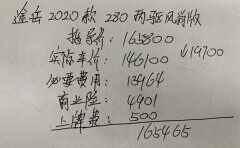 途岳2020款 280两驱风尚版
指导价: 165800
实际车价: 146100 ↓19700
必要费用: 13964
商业险: 4901
上牌费: 500
165465